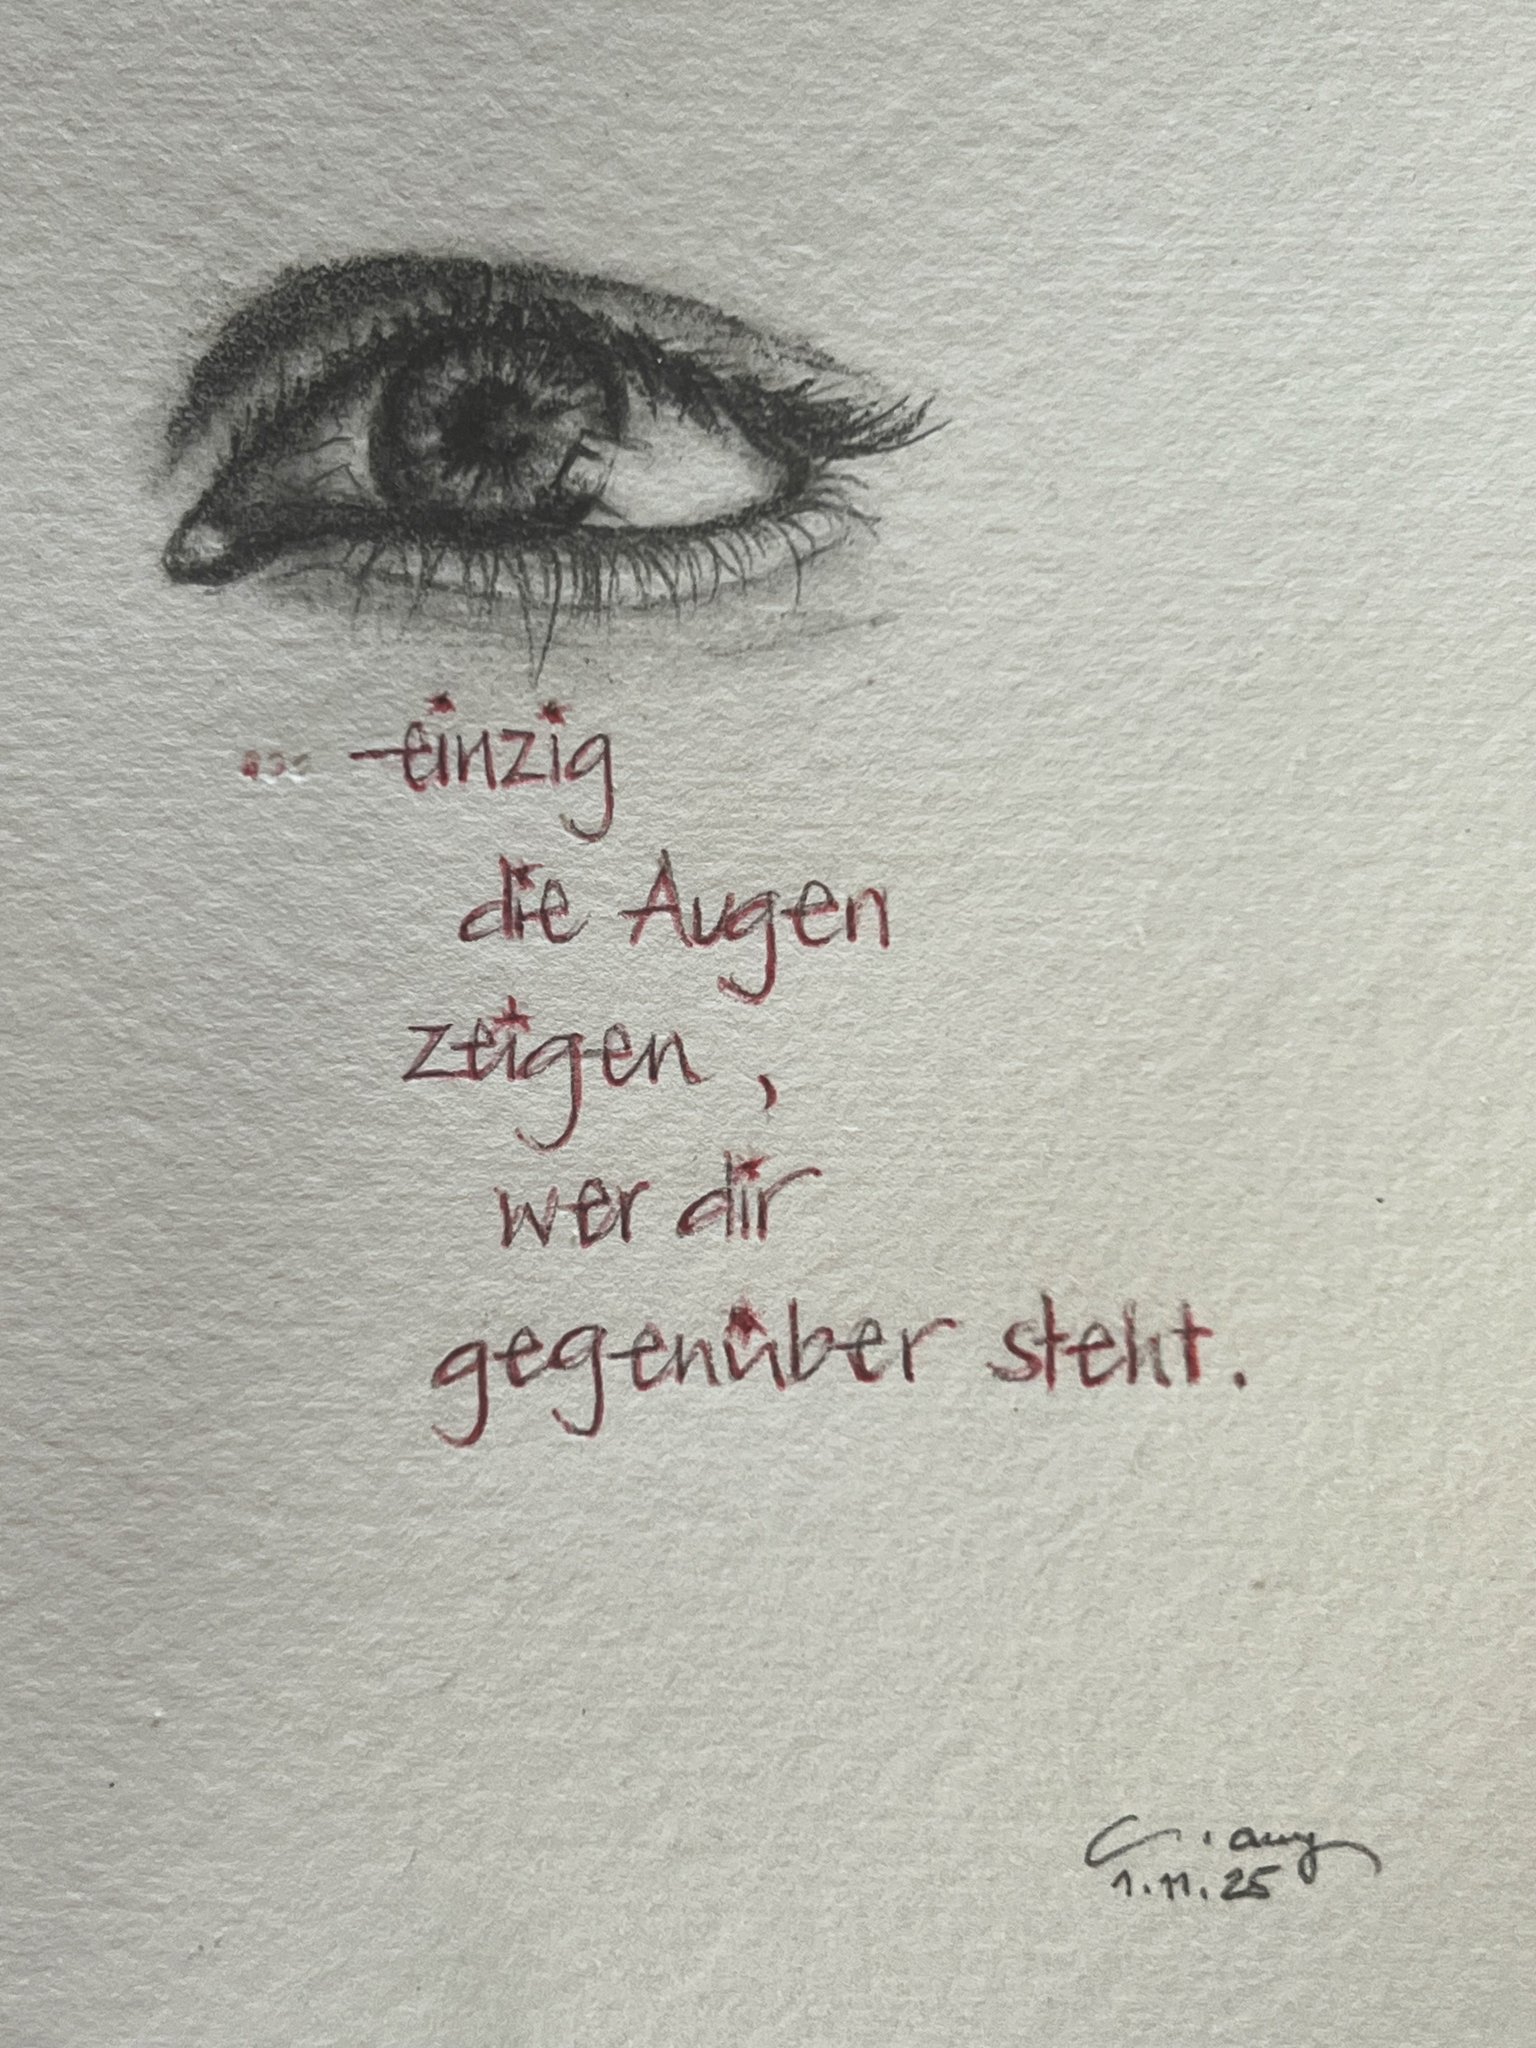 ... einzig
die Augen
zeigen,
wer dir
gegenüber steht.
1.11.25